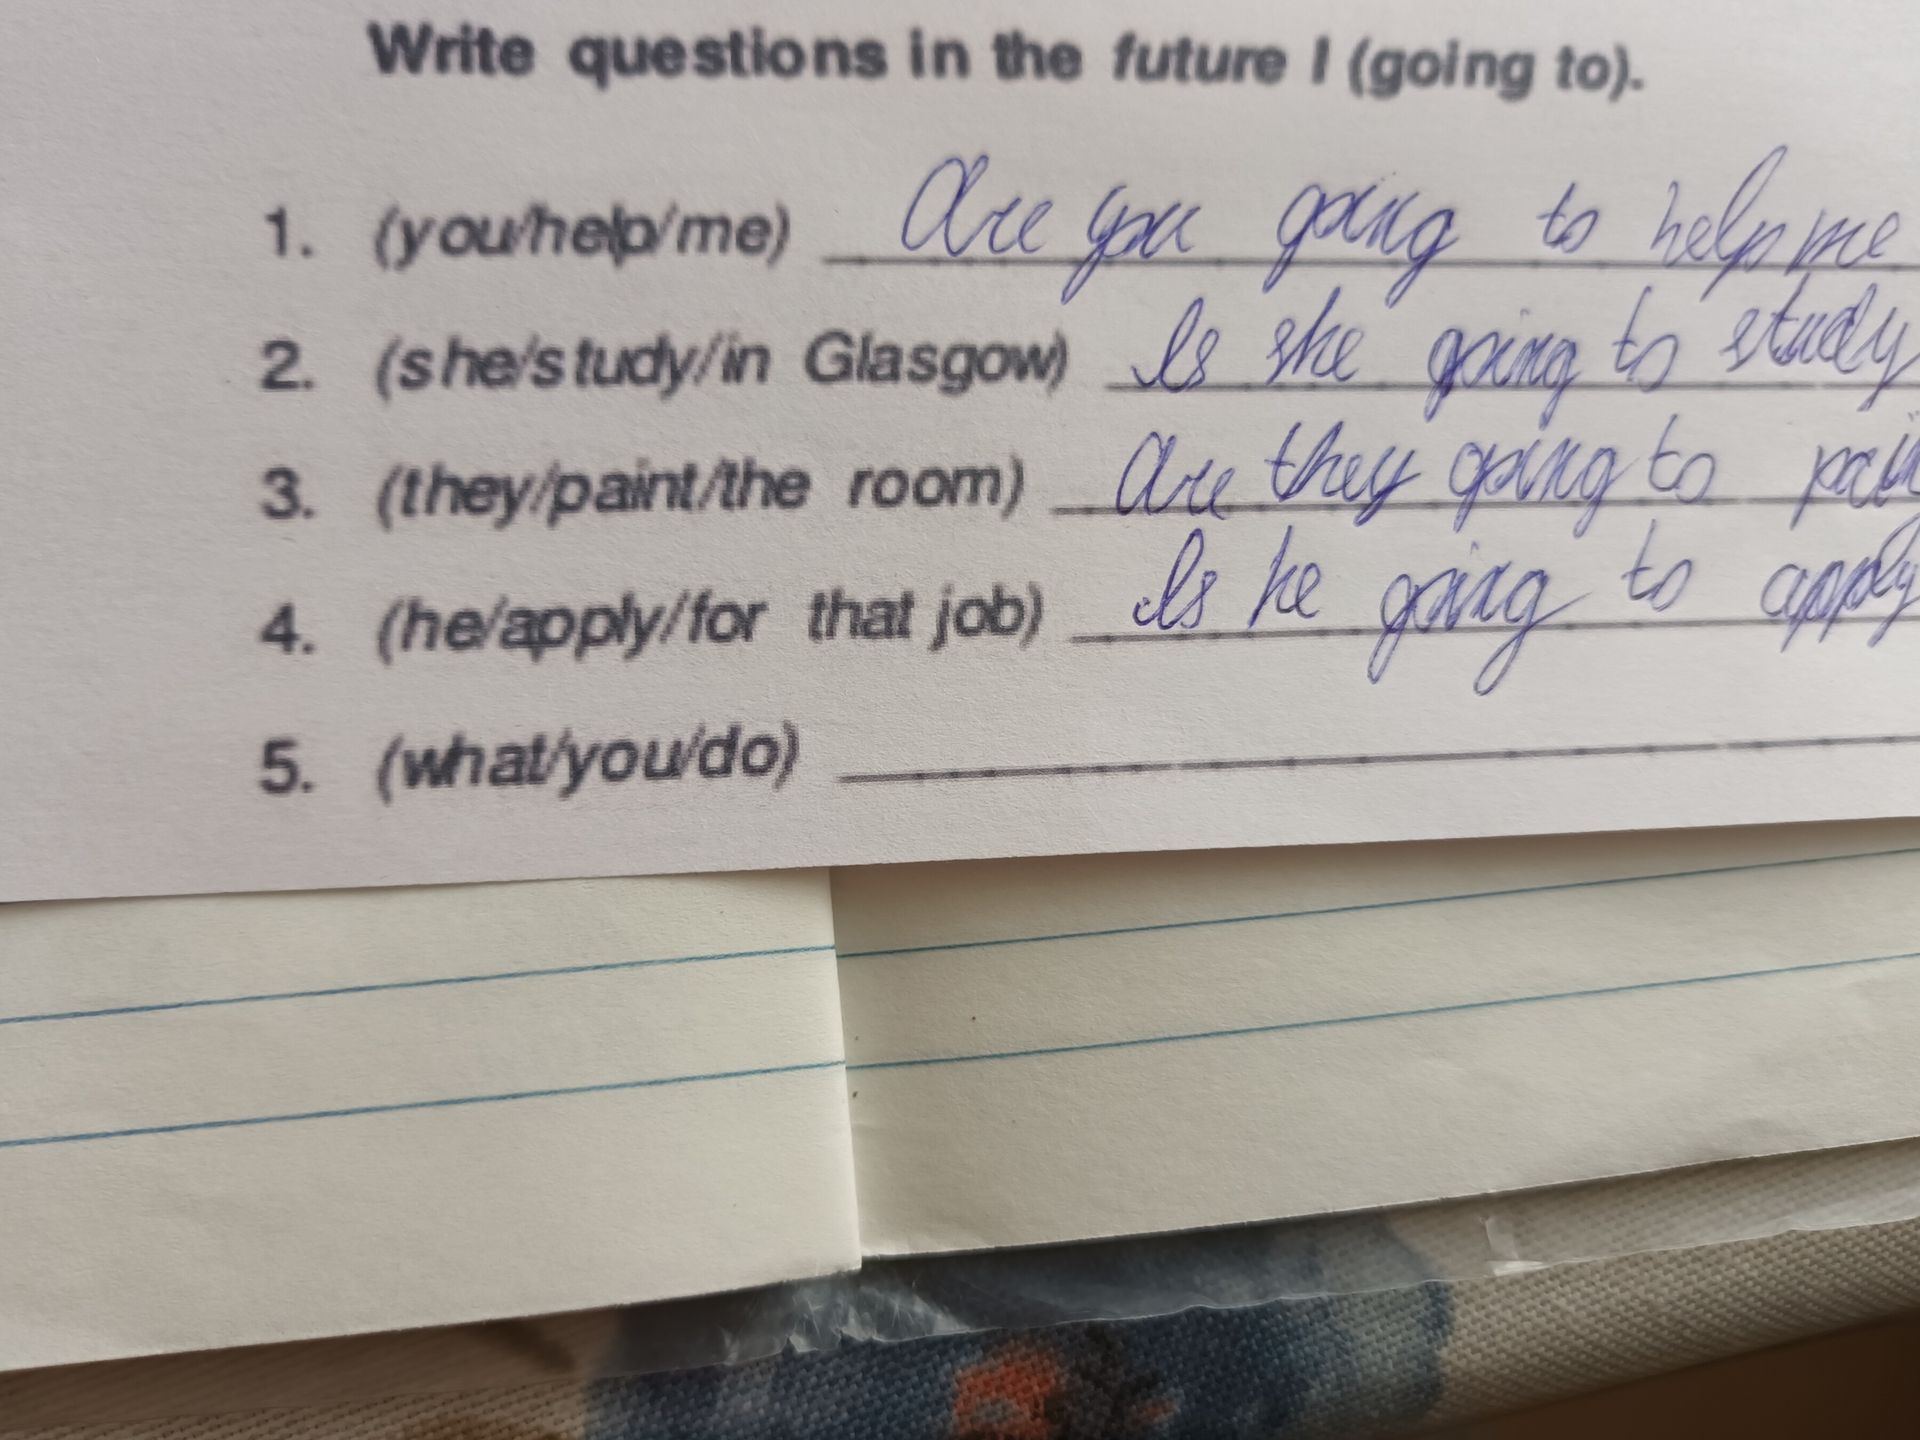 Write questions in the future I (going to).
1. (you/help/me) Are you going to help me
2. (she/study/in Glasgow) Is she going to study
3. (they/paint/the room) Are they going to
4. (he/apply/for that job) Is he going to apply
5. (what/you/do)